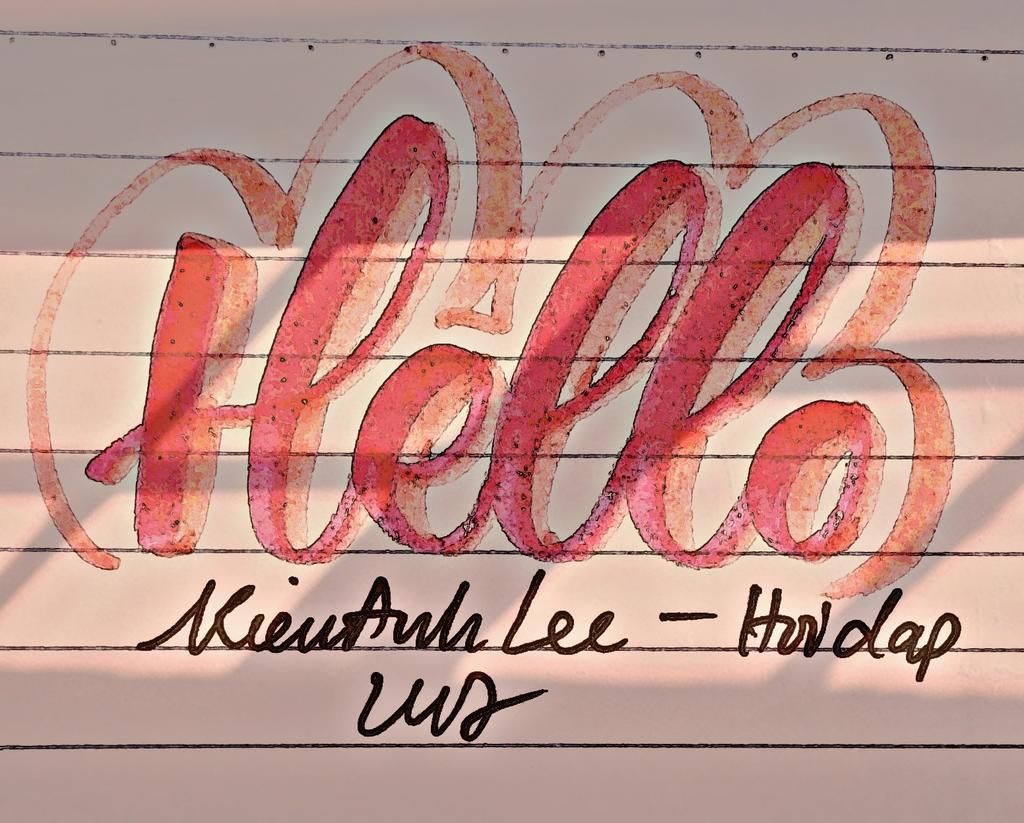 Hello
KienAnh Lee - Hoidap